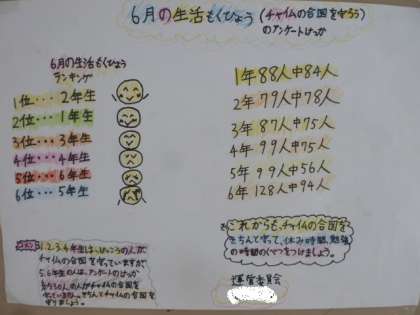 6月の生活もくひょう (チャイムの合図を守ろう)
のアンケートけっか
6月の生活もくひょう
ランキング
1位・・・2年生
2位・・・1年生
3位・・・3年生
4位・・・4年生
5位・・・6年生
6位・・・5年生
1年88人中84人
2年79人中78人
3年87人中75人
4年99人中75人
5年99人中56人
6年128人中94人
1.2.3.4年生は、けっこうの人が
チャイムの合図
を守っていますが
5.6年生の人は、アンケートのけっか
の人がチャイムの合図を
きちんとチャイムの合図を
守りましょう。
これからも、チャイムの合図を
きちんと守って、休み時間、勉強
の時間のくべつをつけましょう。
運営委員会